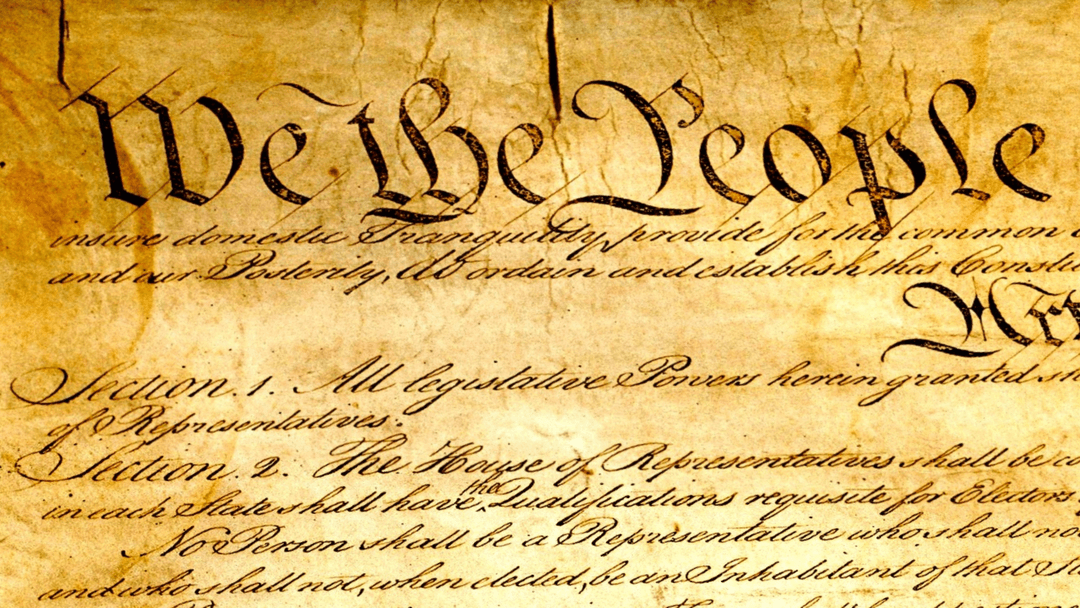 We the People
insure domestic Tranquility, provide for the common
and our Posterity, do ordain and establish this Constit
Section. 1. All legislative Powers herein granted sh
of Representatives.
Section. 2. The House of Representatives shall be co
in each State shall have the Qualifications requisite for Electors
No Person shall be a Representative who shall no
and who shall not, when elected, be an Inhabitant of that St